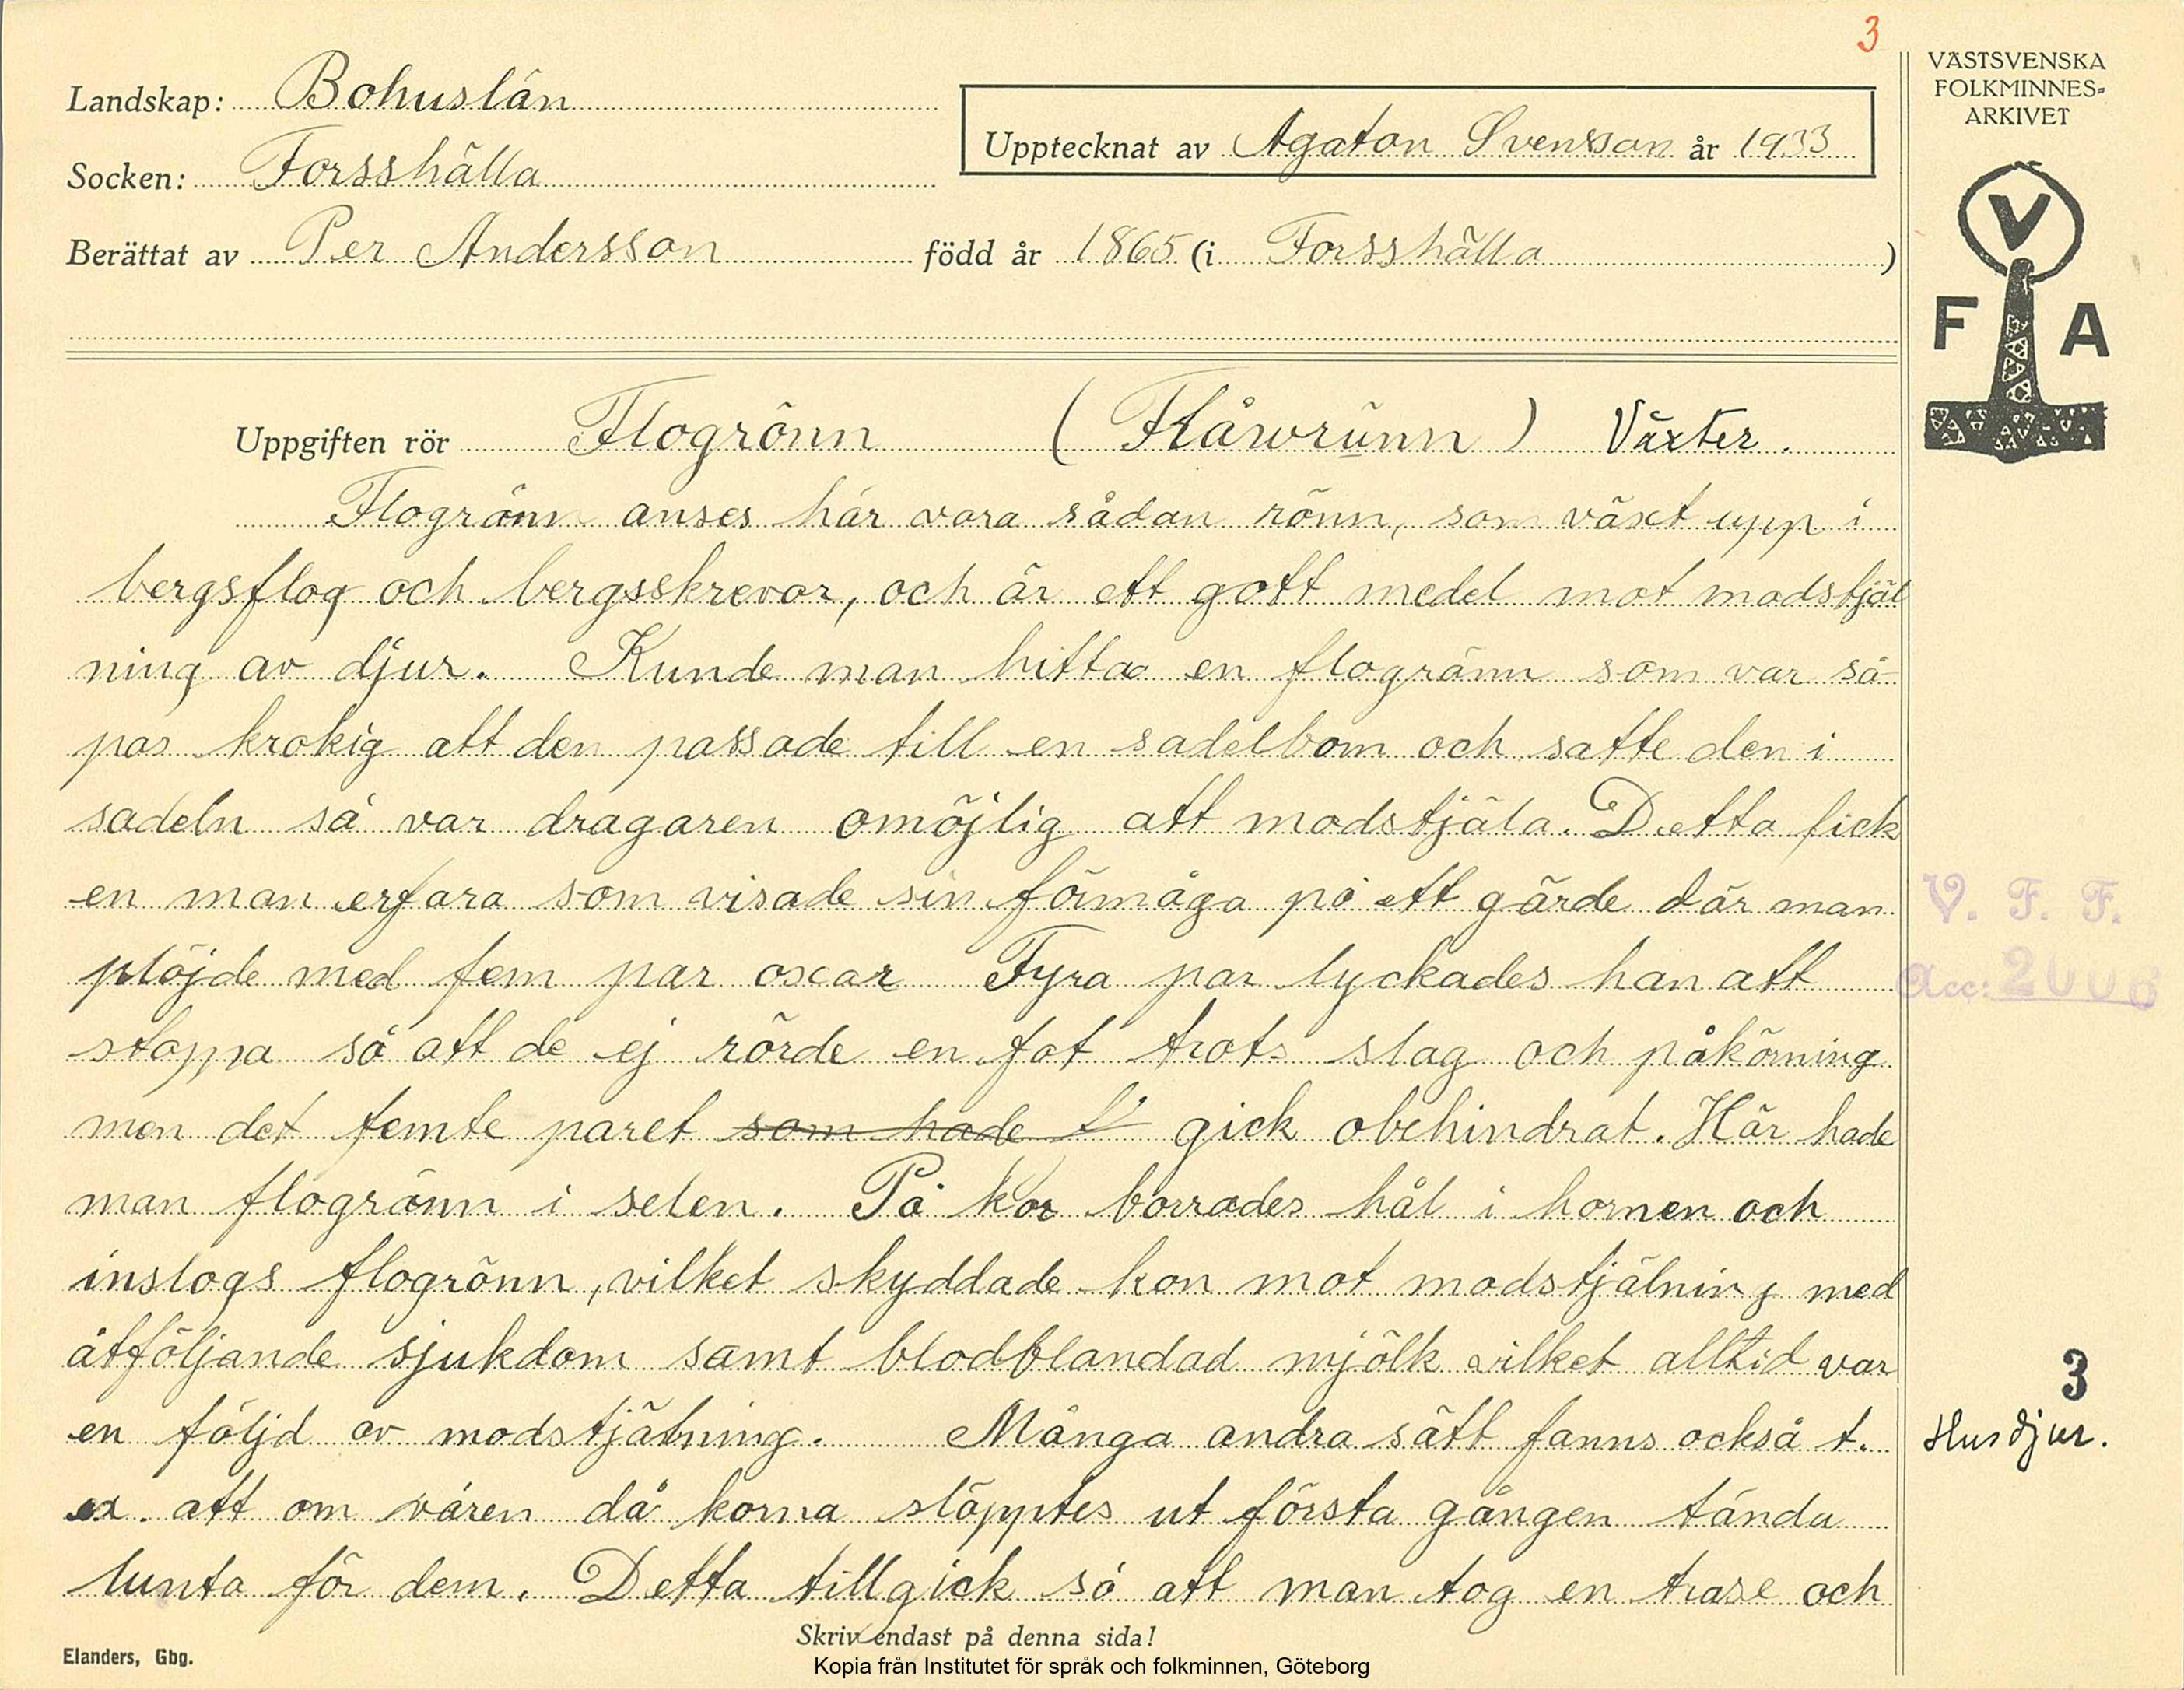 3
Landskap: Bohuslän
Socken: Forsshälla
Upptecknat av Agaton Svensson år 1933
Berättat av Per Andersson född år 1865 (i Forsshälla )
VÄSTSVENSKA
FOLKMINNES-
ARKIVET
V
F A
Uppgiften rör Flogrönn ( Flåwrünn ) Växter.
Flogrönn anses här vara sådan rönn, som växt upp i
bergsflog och bergsskrevor, och är ett gott medel mot modstjäl
ning av djur. Kunde man hitta en flogrönn som var så
pas krokig att den passade till en sadelbom och satte den i
sadeln så var dragaren omöjlig att modstjäla. Detta fick
en man erfara som visade sin förmåga på ett gärde där man
plöjde med fem par oxar Fyra par lyckades han att
stoppa så att de ej rörde en fot trots slag och påkörning
men det femte paret som hade f gick obehindrat. Här hade
man flogrönn i selen. På kor borrades hål i hornen och
inslogs flogrönn, vilket skyddade kon mot modstjälning med
åtföljande sjukdom samt blodblandad mjölk vilket alltid var
en följd av modstjälning. Många andra sätt fanns också t.
ex. att om våren då korna släpptes ut första gången tända
lunta för dem. Detta tillgick så att man tog en trase och
V. F. F.
Acc: 2006
3
Husdjur.
Skriv endast på denna sida!
Elanders, Gbg.
Kopia från Institutet för språk och folkminnen, Göteborg